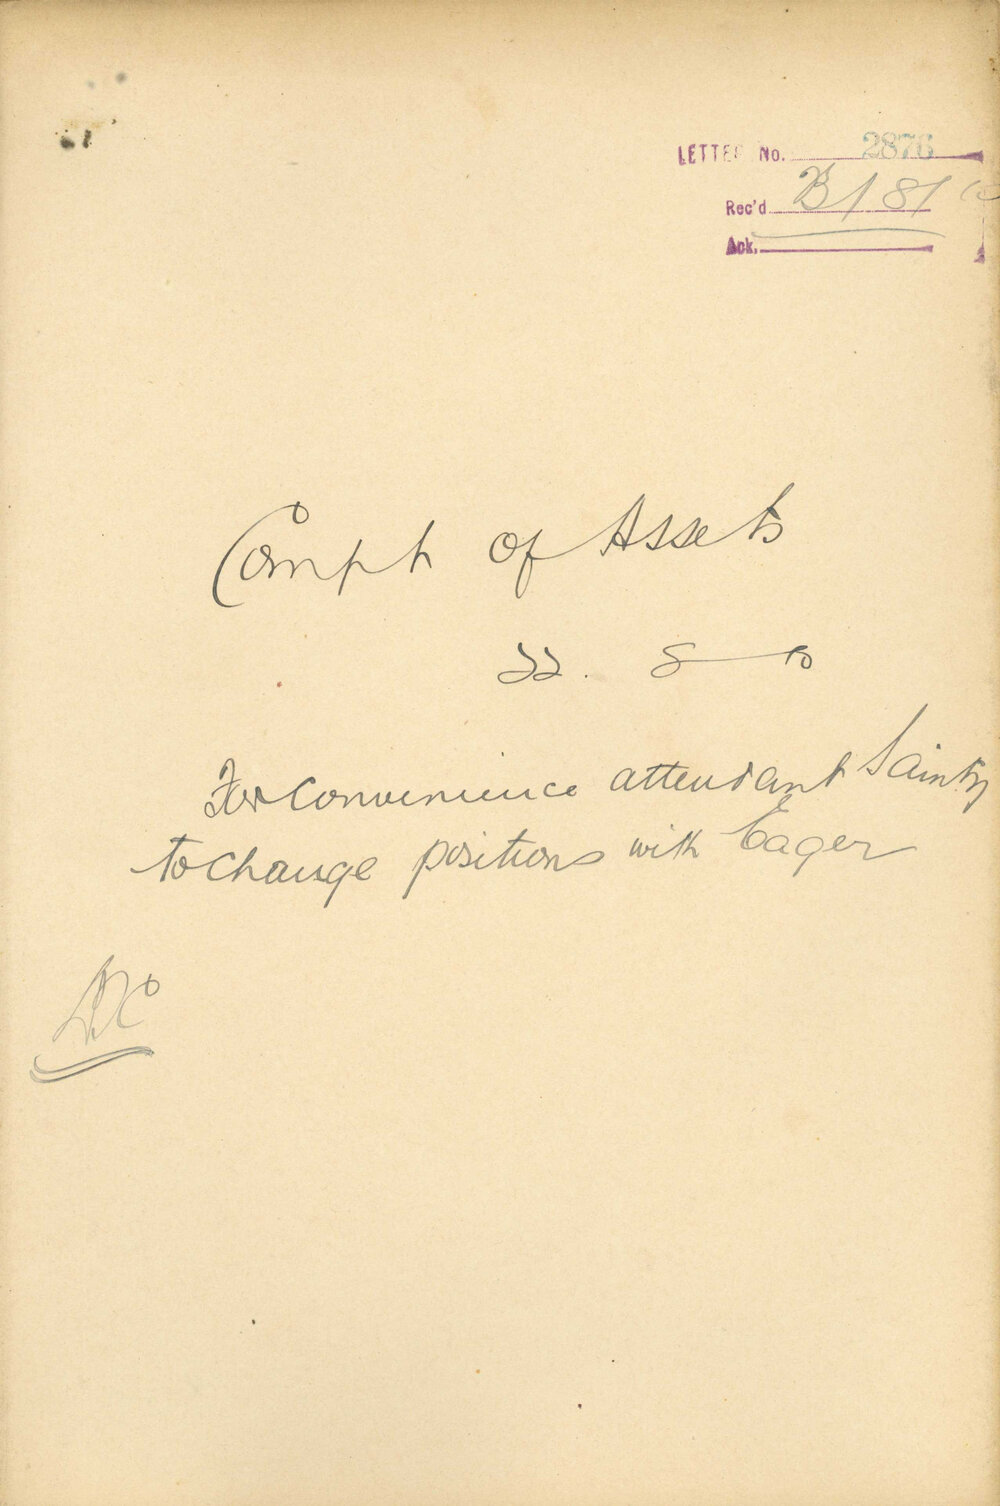 LETTER No. 2876
Rec'd B/81/
Ack.
Compt of Assets
For convenience attendant Sainty
to change positions with Eager